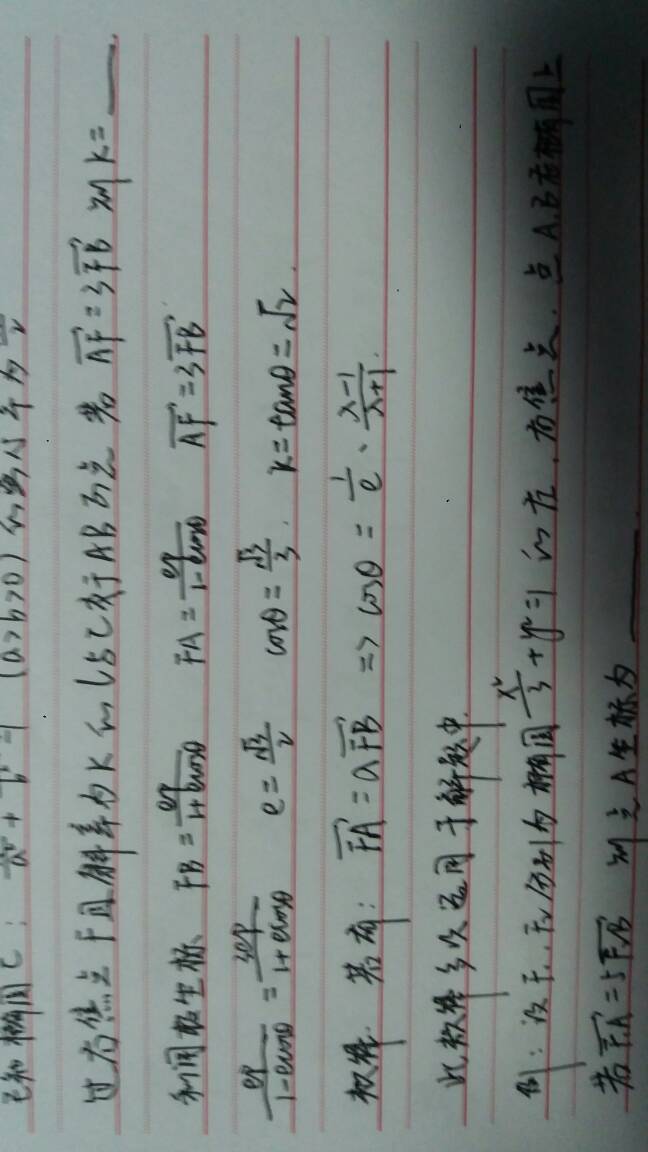 已知椭圆C: x²/a² + y²/b² = 1 (a>b>0) 的离心率为 √3/2
过右焦点F且斜率为K的L与C交于AB两点 若 AF→=3FB→ 则k=____
利用极坐标、 FB = ep/(1+ecosθ) FA = ep/(1-ecosθ) AF→=3FB→
ep/(1-ecosθ) = 3ep/(1+ecosθ) e=√3/2 cosθ=√3/3. k=tanθ=√2.
若有: FA→=λFB→ => cosθ = 1/e · (λ-1)/(λ+1).
此规律多次运用于解题中.
例: 设F₁.F₂分别为椭圆 x²/3 + y²=1 的左.右焦点. 点A.B在椭圆上
若F₁A→=5F₂B→ 则点A坐标为____